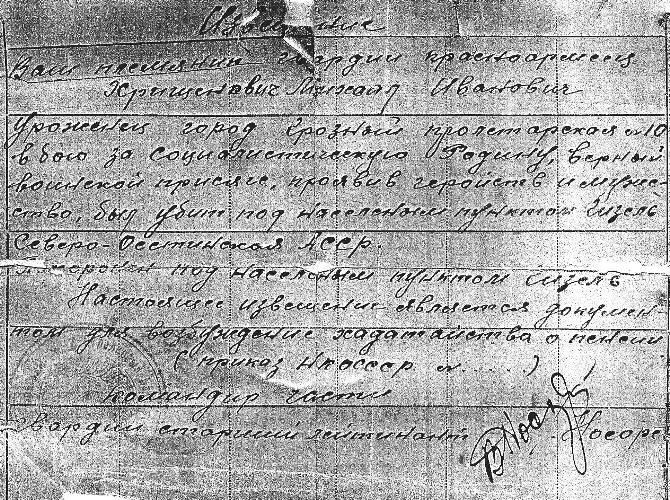 Извещение
Ваш племянник гвардии красноармеец
Хрищенович Михаил Иванович
Уроженец город Грозный пролетарская № 10
в бою за социалистическую Родину, верный
воинской присяге, проявив геройств и муже-
ство, был убит под населеным пунктом Гизель
Северо-Осетинская АССР.
Похоронен под населеным пунктом Гизель
Настоящее извещение является докумен-
том для возбуждение хадатайства о пенсии
(приказ НКОСССР №.....)
командир части
Гвардии старший лейтинант